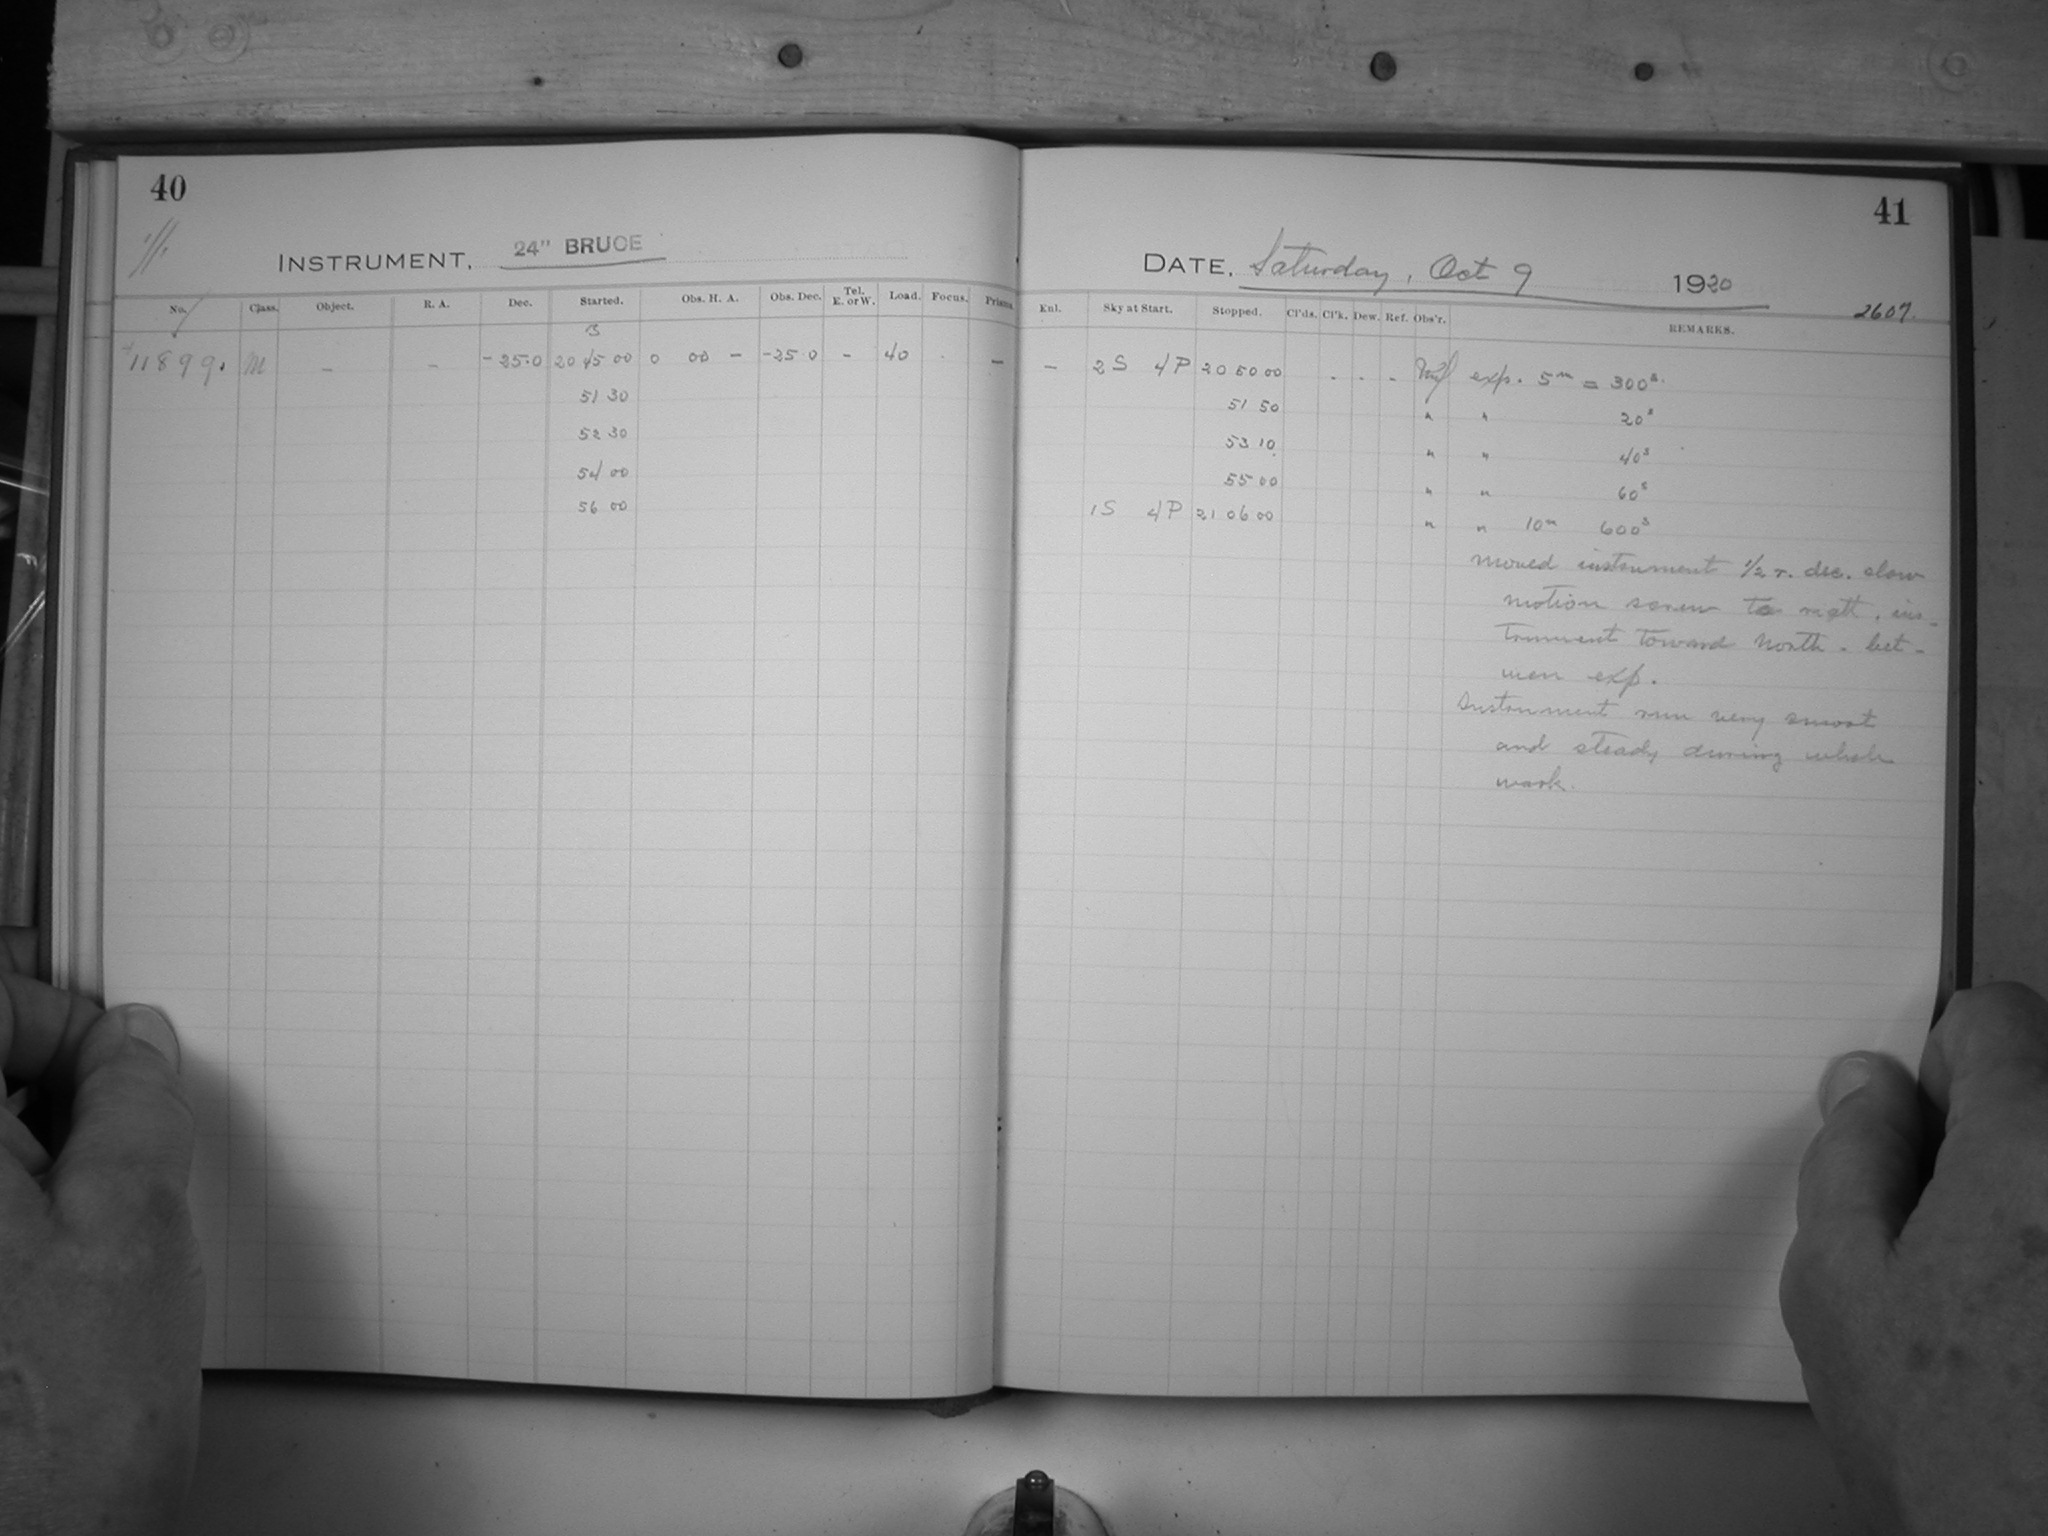 40
INSTRUMENT, 24" BRUCE
No. Class. Object. R. A. Dec. Started. Obs. H. A. Obs. Dec. Tel. E. or W. Load. Focus. Prisms.
11899. M - - -25.0 20 45 00 0 00 - -25 0 - 40 -
51 30
52 30
54 00
56 00
41
DATE, Saturday, Oct 9 1920
2607.
Enl. Sky at Start. Stopped. Cl'ds. Cl'k. Dew. Ref. Obs'r. REMARKS.
- 2 S 4 P 20 50 00 . . - exp. 5m = 300s.
51 50 " " 20s
53 10 " " 40s
55 00 " " 60s
1 S 4 P 21 06 00 " " 10m 600s
moved instrument 1/2 r. dec. slow
motion screw to ins-
trument toward North - bet-
ween exp.
Instrument run very smoot
and steady during whole
work.